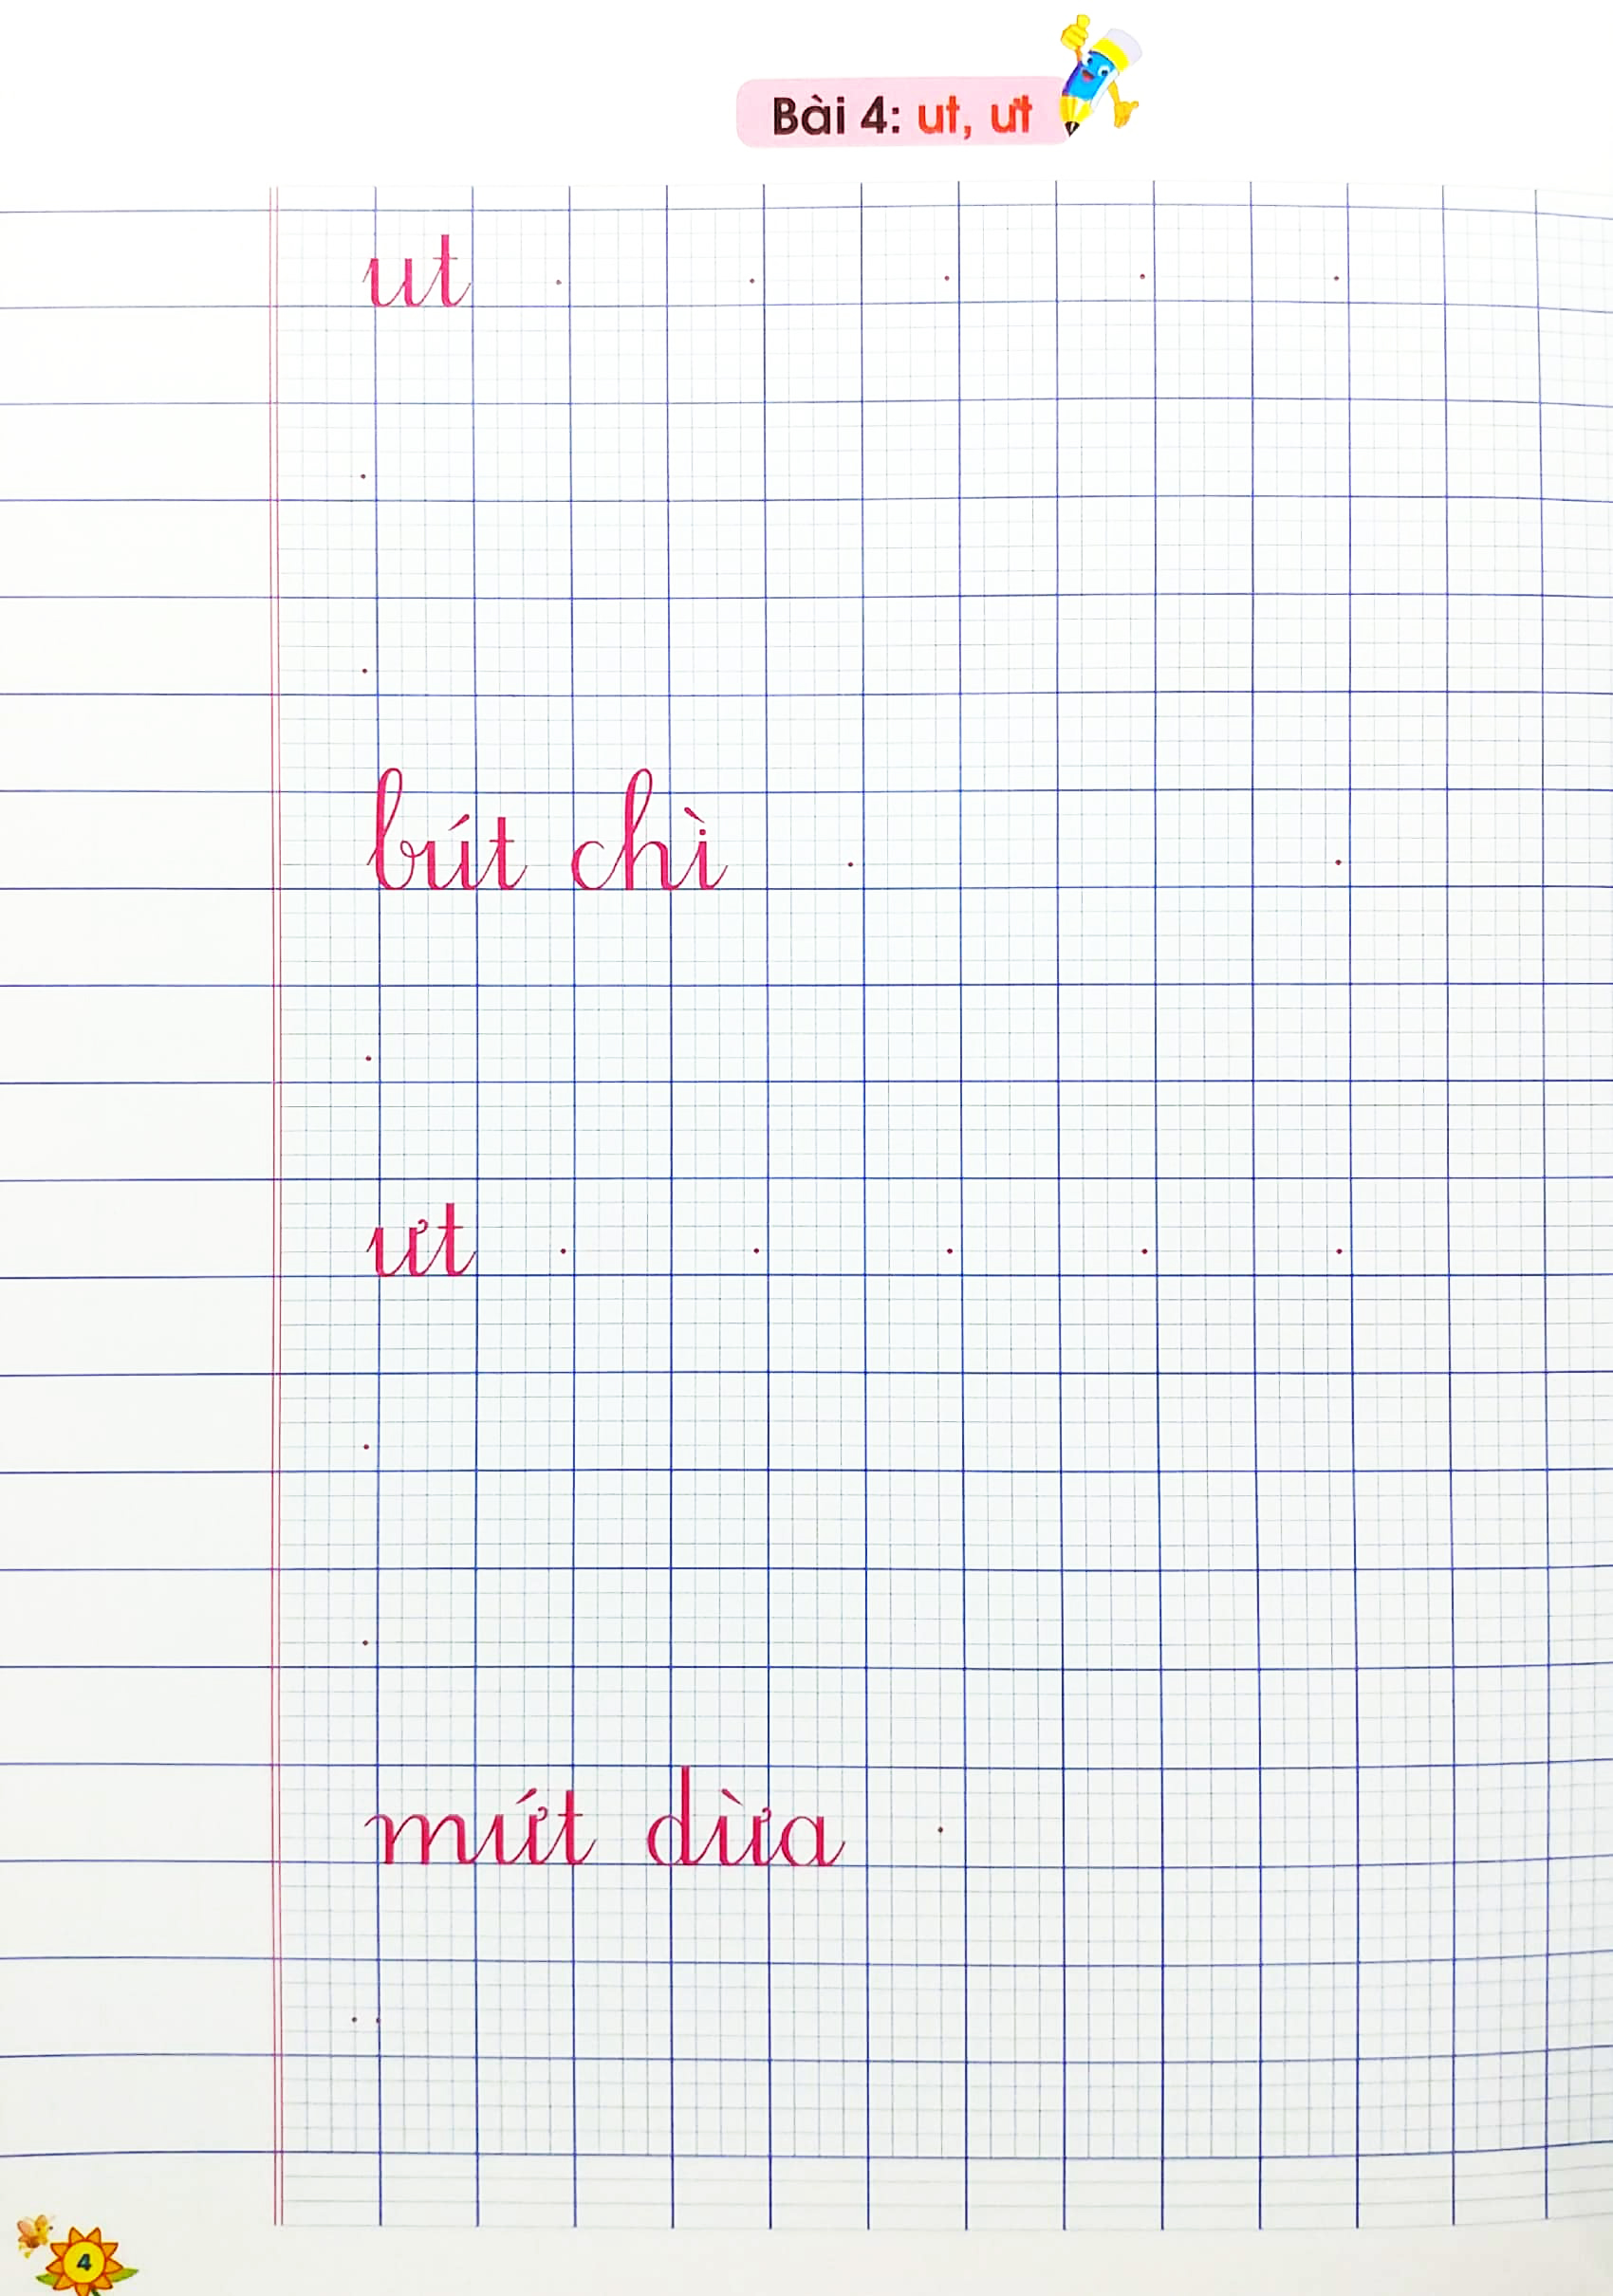 Bài 4: ut, ưt
ut
bút chì
ưt
mứt dừa
4